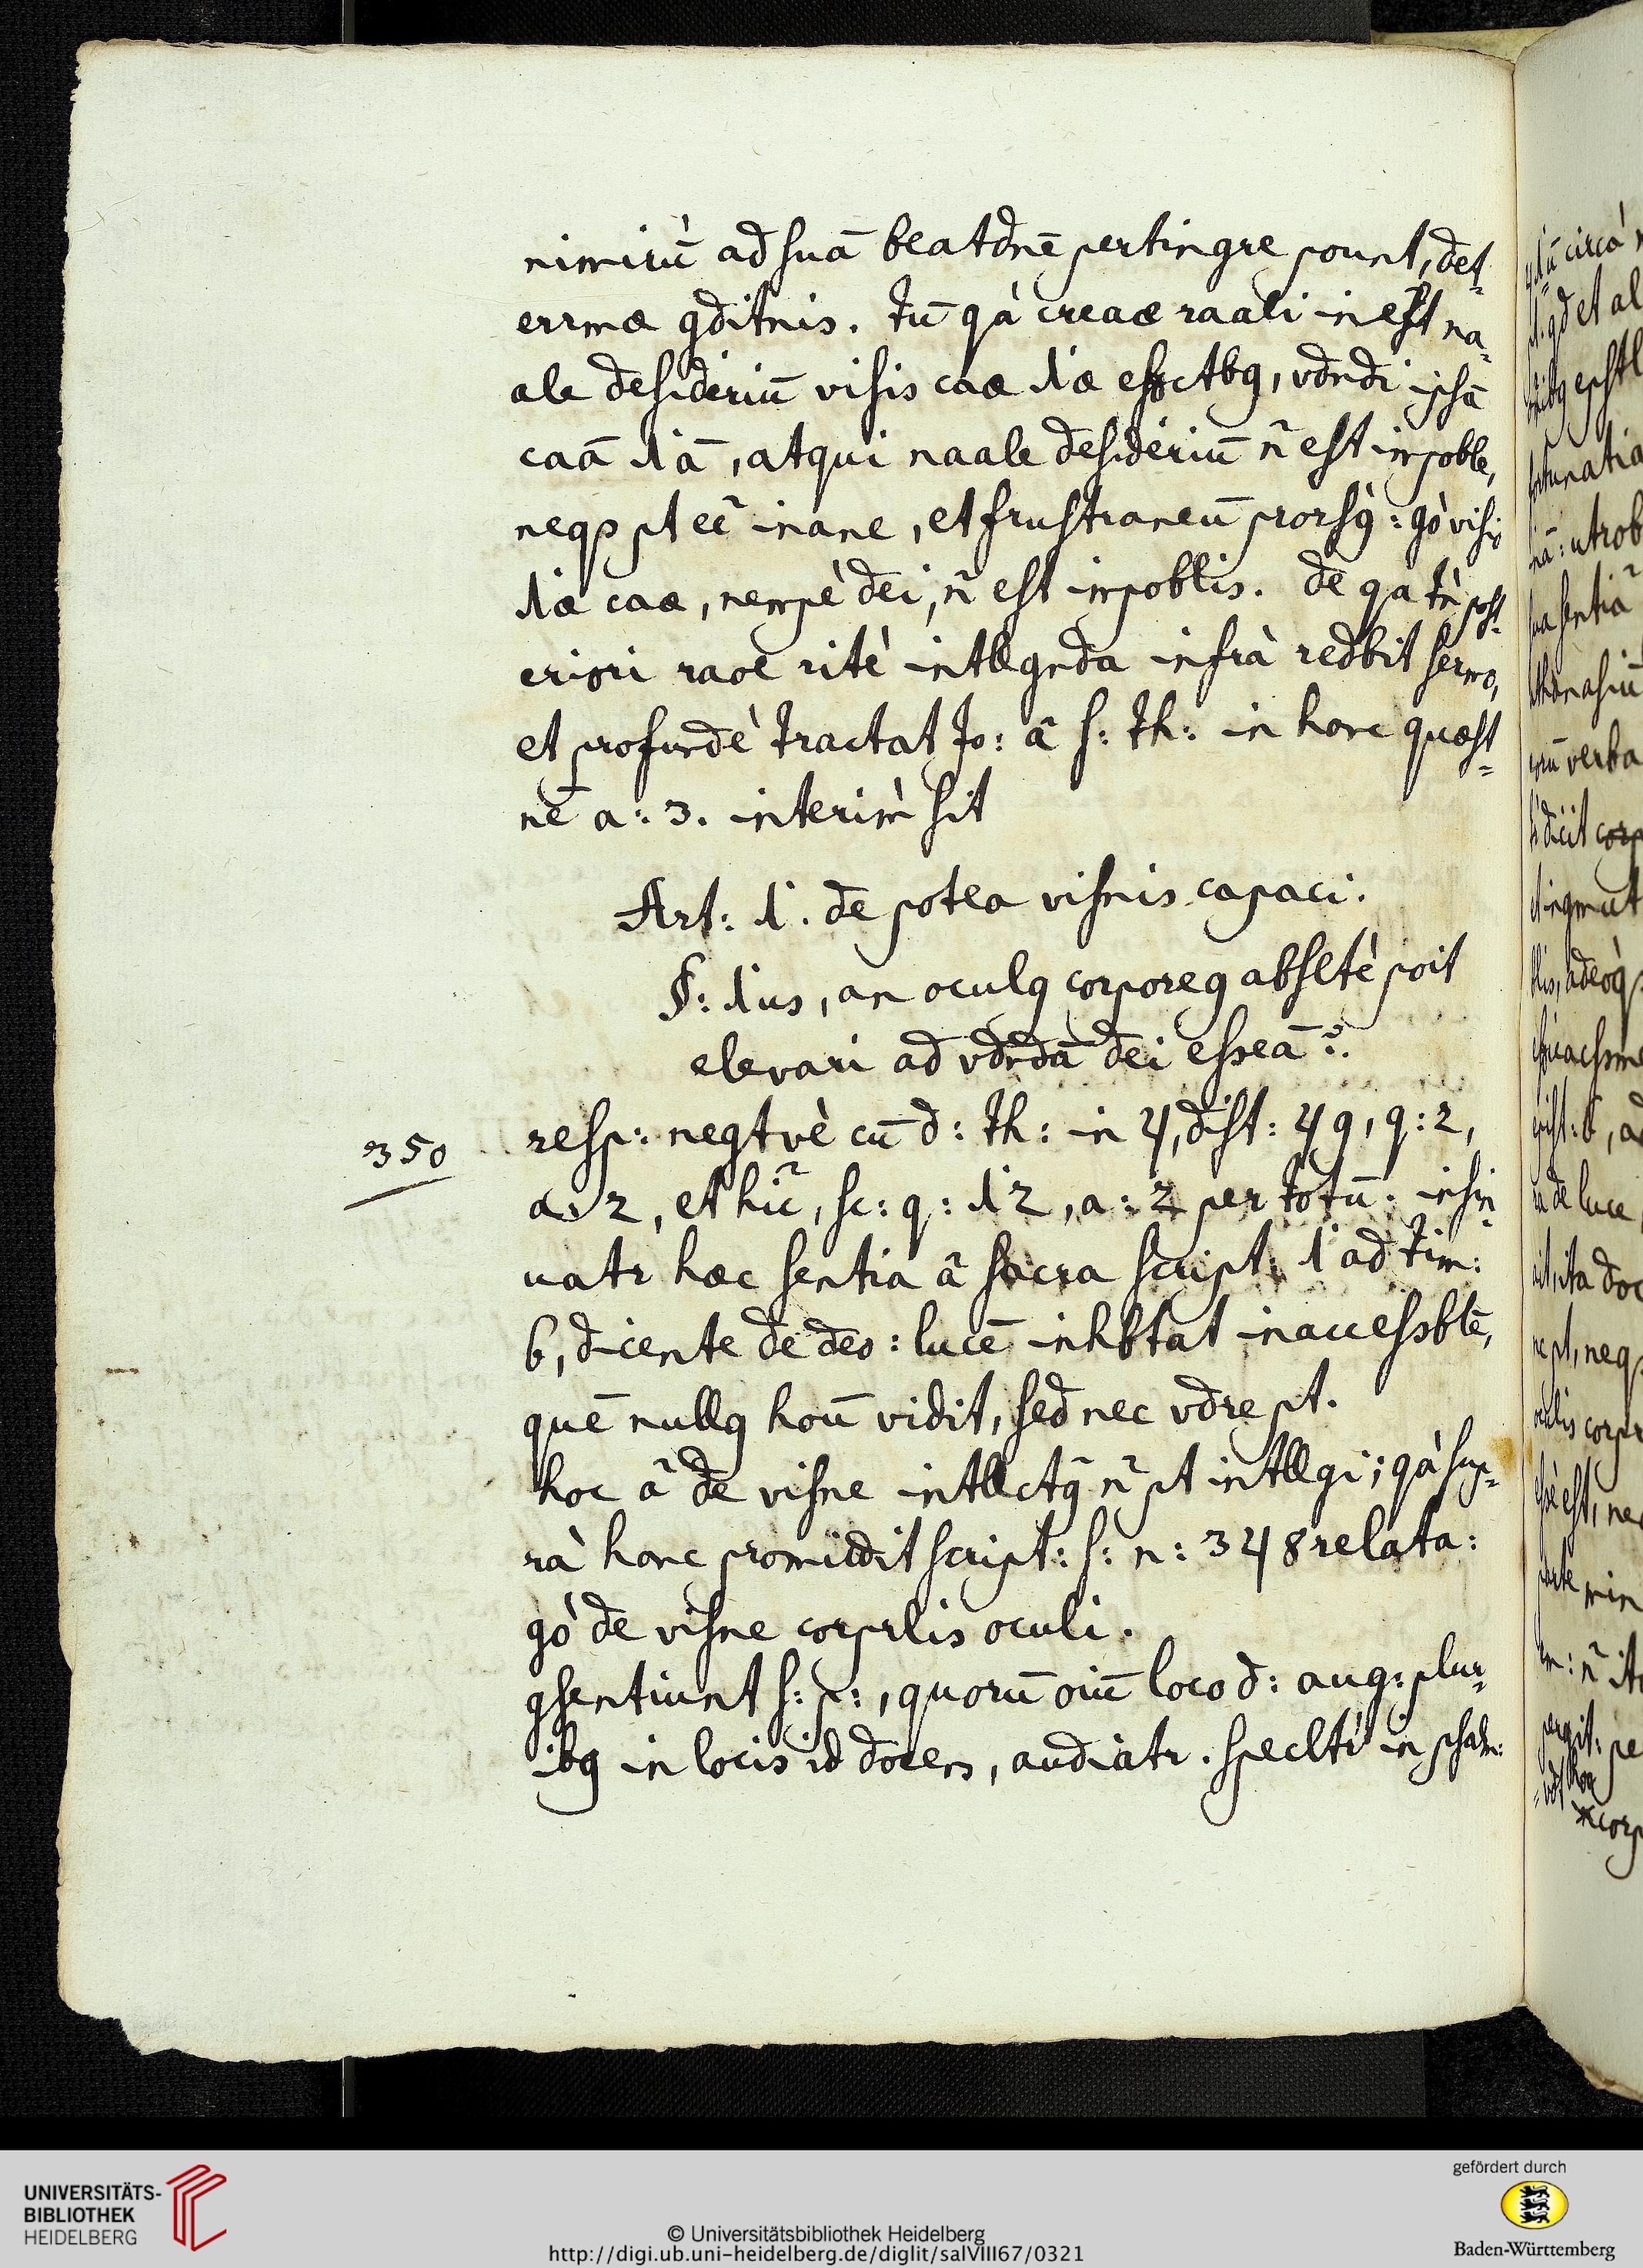 nimirũ ad suã beatdnẽ pertingre pount, det-
ermæ qditnis. Tũ qà creaæ raali inest na-
ale desideriũ visis caæ 1æ effctbq, vdndi ipsã
caã 1ã, atqui naale desideriũ ñ est impoble,
neqs pt eẽ inane, et frustraneũ prorsq: gò visio
1æ caæ, nempè dei, ñ est impoblis. De qa tñ post-
eriori raoe ritè intllgnda infrà redbit sermo,
et profundè tractat Jo: â S: Th: in hanc quæst-
nẽ a: 3. interim̀ sit
Art: 1. de potea visnis capaci.
§: 1us, an oculq corporeq absltè poit
elevari ad vdndã dei esseã?
350
resp: negtvè cũ d: Th: in 4, dist: 49, q: 2,
a: 2, et hĩc, sc: q: 12, a: 2 per totũ. insin-
uatr hæc sentia â sacra script: 1 ad Tim:
6, dicente de deo: lucẽ inhbtat inaccessblẽ,
quẽ nullq hoũ vidit, sed nec vdre pt.
hoc ã de visne intllctq̃ ñ pt intllgi; qà sup-
rà hanc promidit script: s: n: 348 relata:
gò de visne corprlis oculi.
qsentiunt s: p:, quorũ oiũ loco d: aug: plur-
ibq in locis id docens, audiatr. specltr in psalm:
UNIVERSITÄTS-
BIBLIOTHEK
HEIDELBERG
© Universitätsbibliothek Heidelberg
http://digi.ub.uni-heidelberg.de/diglit/salVIII67/0321
gefördert durch
Baden-Württemberg